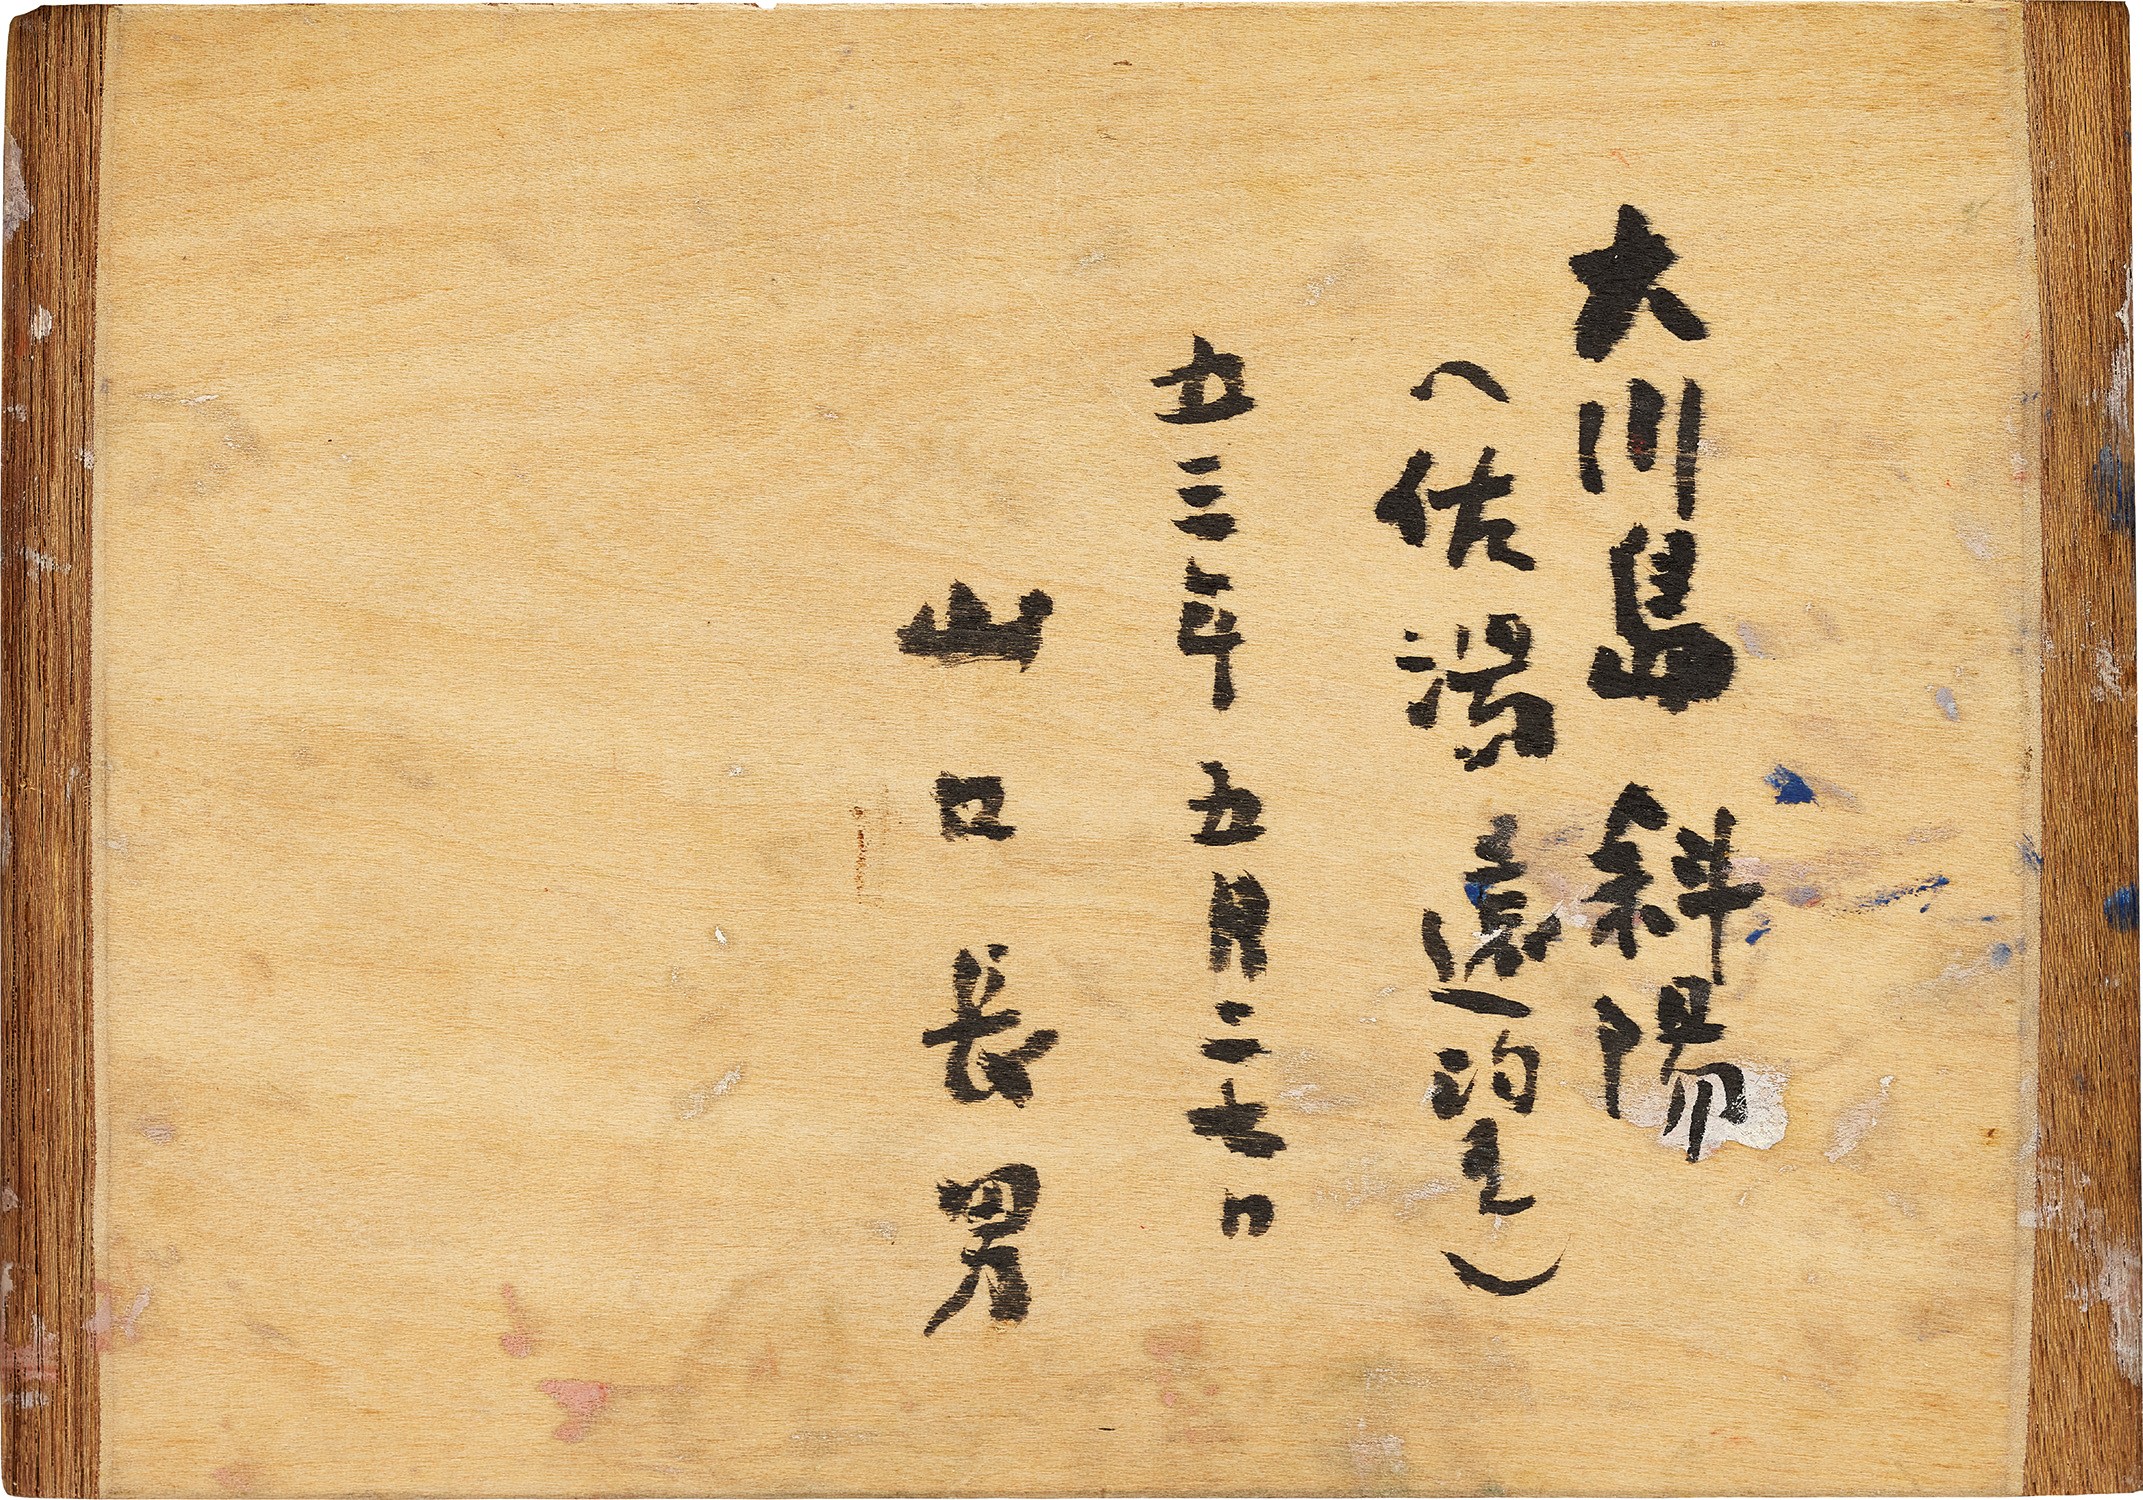 大川島 斜陽
(佐潟遠望)
五三年 五月二七日
山口長男